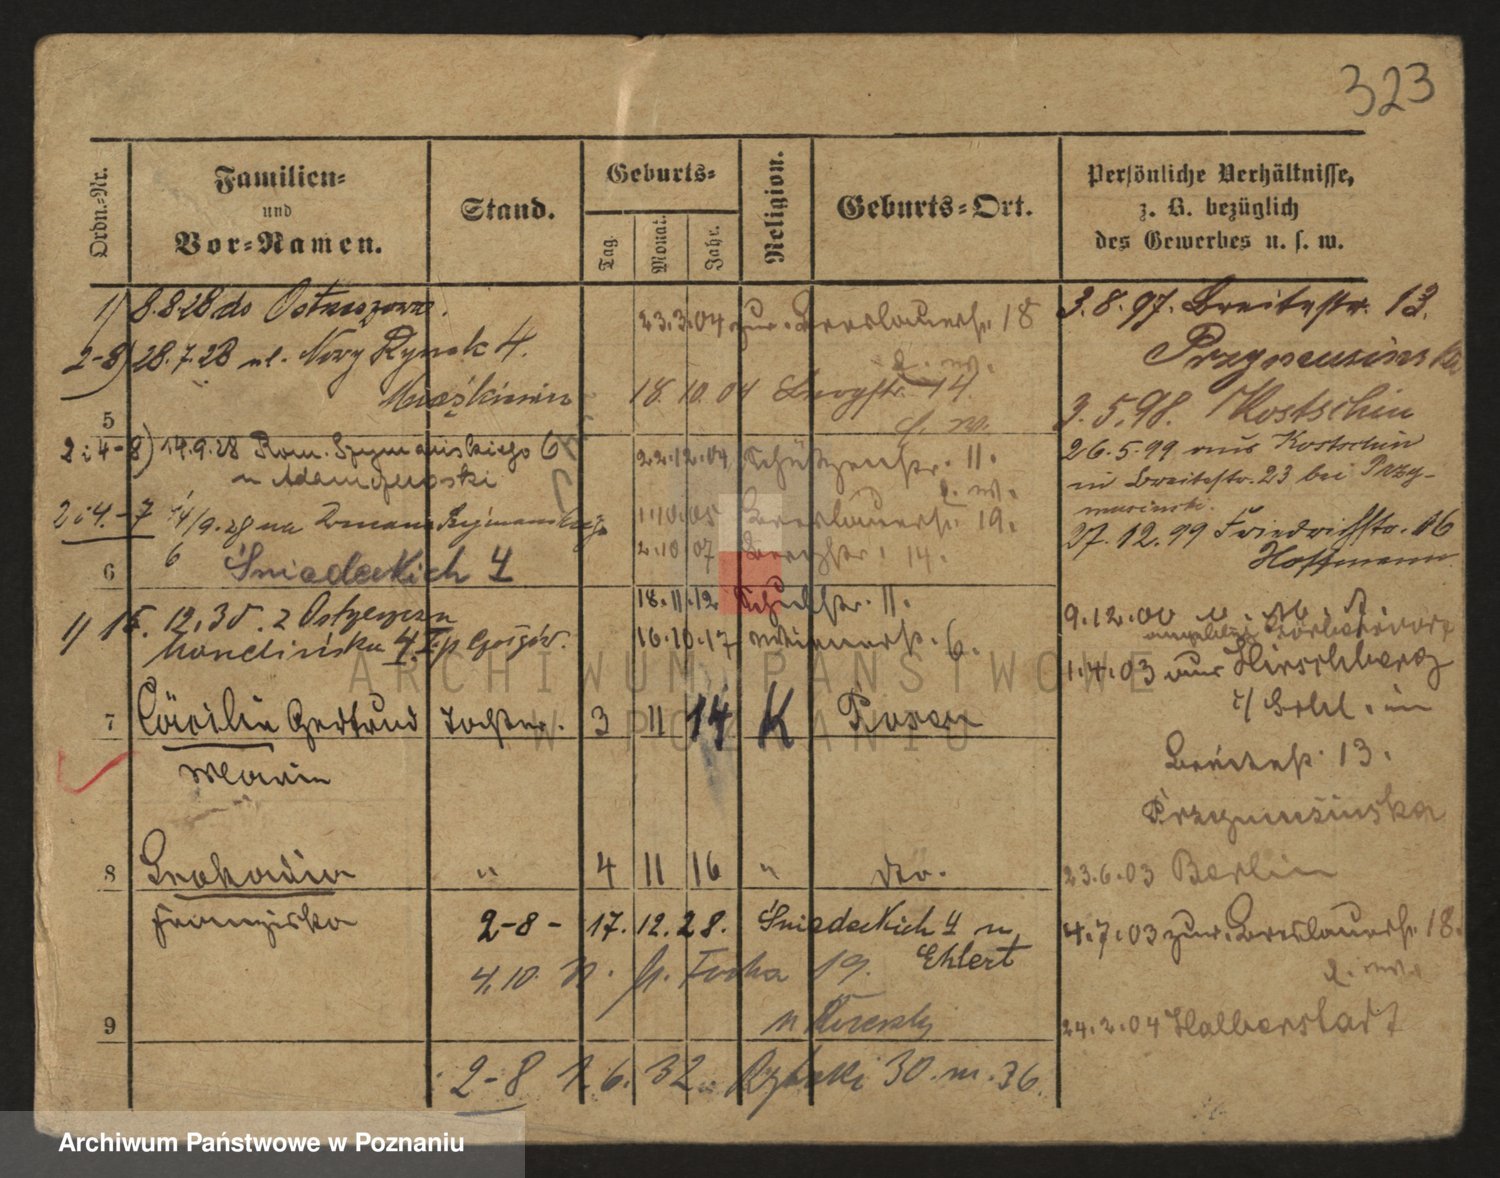 323
Ordn.-Nr.
Familien-
und
Vor-Namen.
Stand.
Geburts-
Tag.
Monat.
Jahr.
Religion.
Geburts-Ort.
Persönliche Verhältnisse,
z. B. bezüglich
des Gewerbes u. s. w.
1) 8.8.28 do Ostrzeszowa.
2-8) 28.7.28 ul. Nowy Rynek 4.
5
2i4-8) 14.9.28 Rom. Szymańskiego 6
u
2i4.-7 14/9.28 na Romana Szymańskiego
6
6
Śniadeckich 4
1) 15.12.30. z
4.
7
Cäcilie Gertrud
Tochter.
3
11
14
K
Posen
Marie
8
Leokadia
"
4
11
16
"
dto.
Franziska
2-8- 17.12.28. Śniadeckich 4 u
Ehlert
4.10. Focha 19.
9
2-8 1.6.32 Rybaki 30. m. 36.
23.3.04 zur. Breslauerstr. 18
b. w.
18.10.04 14
b. w.
22.12.04 Schützenstr. 11.
b. w.
1.10.05 Breslauerstr. 19.
2.10.07 14.
18.11.12 Schulstr. 11.
16.10.17 Wienerstr. 6.
3.8.97. Breitestr. 13.
Przymusinska
3.5.98. Kostschin
26.5.99 aus Kostschin
in Breitestr. 23 bei Przy-
musinski.
27.12.99 Friedrichstr. 16
Hoffmann
9.12.00
1.4.03 aus Hirschberg
in
Breitestr. 13.
Przymusinska
23.6.03 Berlin
4.7.03 zur. Breslauerstr. 18.
b. w.
24.2.04 Halberstadt
ARCHIWUM PAŃSTWOWE
W POZNANIU
Archiwum Państwowe w Poznaniu